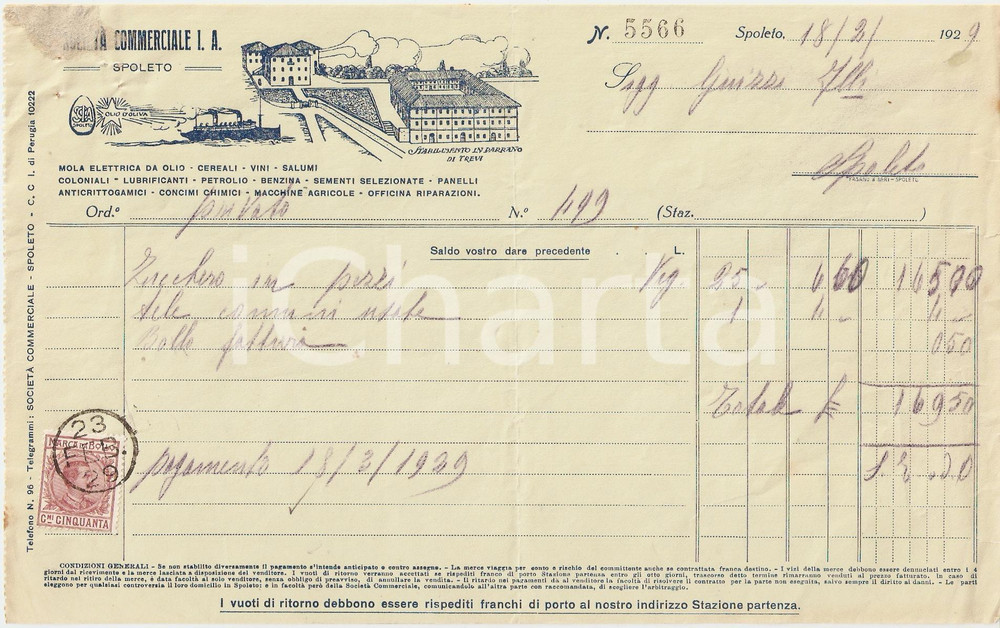 SOCIETÀ COMMERCIALE I. A.
SPOLETO
SPOLETO
OLIO D'OLIVA
STABILIMENTO IN PARRANO
DI TREVI
N. 5566 Spoleto, 18/2/ 1929
Sigg
Spoleto
MOLA ELETTRICA DA OLIO - CEREALI - VINI - SALUMI
COLONIALI - LUBRIFICANTI - PETROLIO - BENZINA - SEMENTI SELEZIONATE - PANELLI
ANTICRITTOGAMICI - CONCIMI CHIMICI - MACCHINE AGRICOLE - OFFICINA RIPARAZIONI.
Ord.º privato N.º 499 (Staz. )
Saldo vostro dare precedente L.
Zucchero in pezzi Kg. 25 - 6 60 165 00
tele 1 4 - 4 -
Bollo fattura 0 50
Totale £ 169 50
pagamento 18/3/1929
Telefono N. 96 - Telegrammi: SOCIETÀ COMMERCIALE - SPOLETO - C. C. I. di Perugia 10222
MARCA DA BOLLO
Cmi CINQUANTA
23
FEB
29
iCharta
CONDIZIONI GENERALI - Se non stabilito diversamente il pagamento s'intende anticipato o contro assegno. - La merce viaggia per conto e rischio del committente anche se contrattata franca destino. - I vizi della merce debbono essere denunciati entro i 4
giorni dal ricevimento e la merce lasciata a disposizione del venditore. I vuoti di ritorno verranno accettati se rispediti franco di porto Stazione partenza entro gli otto giorni, trascorso detto termine rimarranno venduti al prezzo fatturato. In caso di
ritardo nel ritiro della merce, è data facoltà al solo venditore, senza obbligo di preavviso, di annullare la vendita. - Il ritardo nei pagamenti dà al venditore la facoltà di risolvere il contratto per la parte non eseguita, salvo sempre il diritto ai danni. - Le parti
eleggono per qualsiasi controversia il loro domicilio in Spoleto; e in facoltà però della Società Commerciale, comunicandolo all'altra parte con raccomandata, di scegliere l'arbitraggio.
I vuoti di ritorno debbono essere rispediti franchi di porto al nostro indirizzo Stazione partenza.